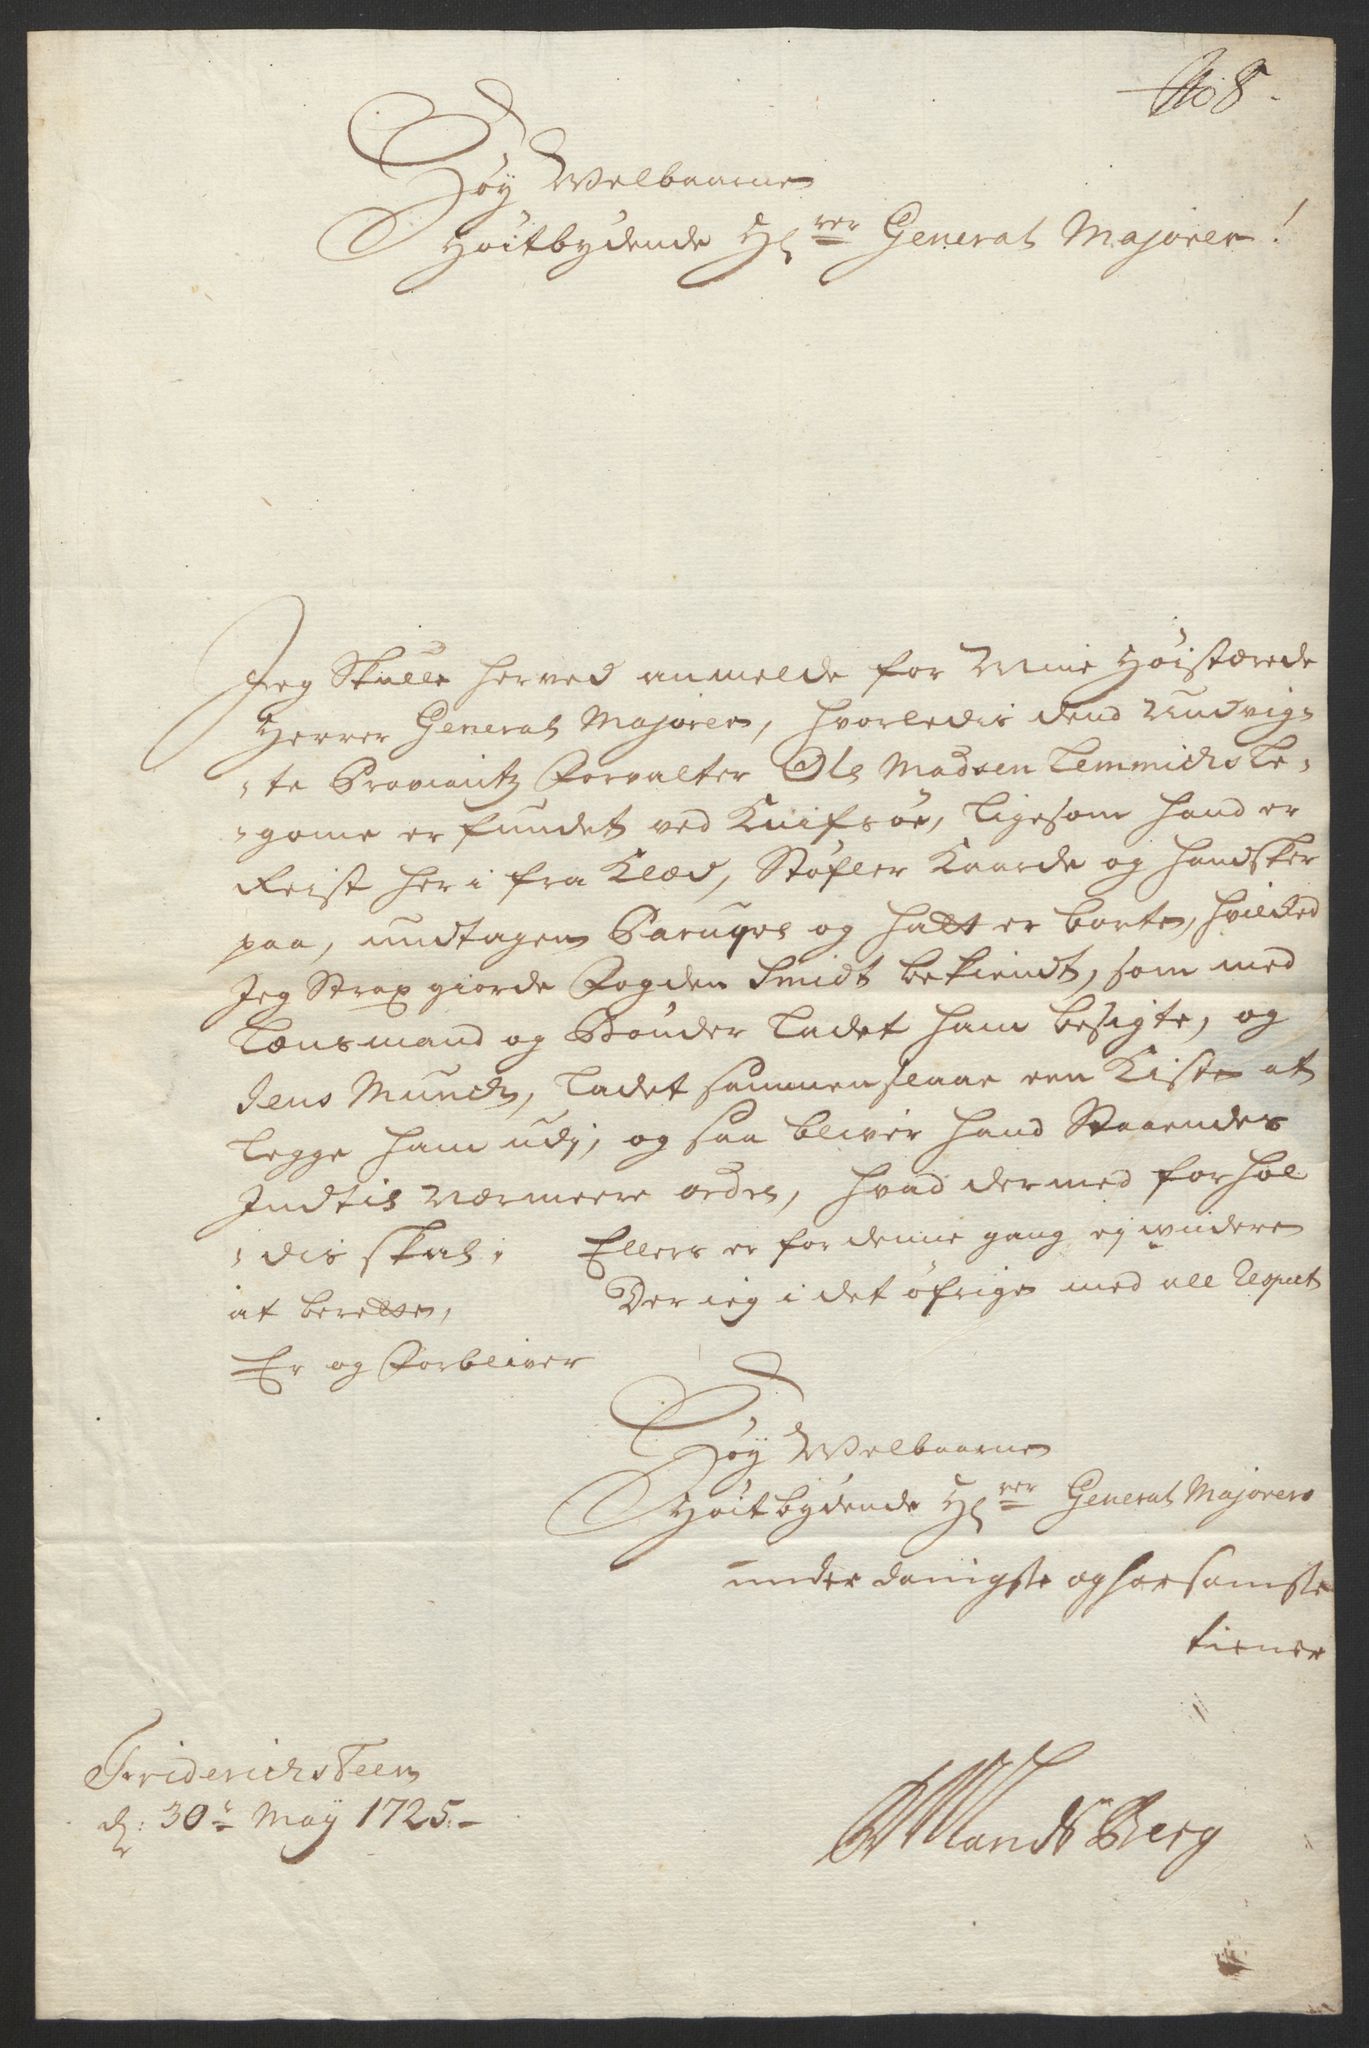 No 8.
Høy Welbaarne
Høitbydende Hrer General Majorer!
Jeg Skulle herved anmelde for Mine Høistærede
Herrer General Majorer, hvorledis dend Undvig-
-te Proviantz Forvalter Ole Madsen Lemmichs Le-
-geme er fundet ved Knifsøe, ligesom hand er
Reist her i fra Klæd, Støfler Kaarde og handsker
paa, undtagen Paruqve og Hatt er borte, hvilcked
Jeg Strax giorde Fogden Smidt bekiendt, som med
Lænsmand og Bønder ladet ham besigte, og
Jens Munch, ladet sammenslaae een Kiste at
legge ham udj, og saa bliver hand Staaendes
Indtil nærmeere ordre, hvad dermed forhol
-dis skal. Ellers er for denne gang ej widere
at berette, Der ieg i det øfrige med all Respect
Er og Forbliver
Høy Welbaarne
Høitbydende Hrer General Majorers
underdanigste og hørsamste
tiener
Friderichsteen
d: 30te May 1725.-
Landsberg